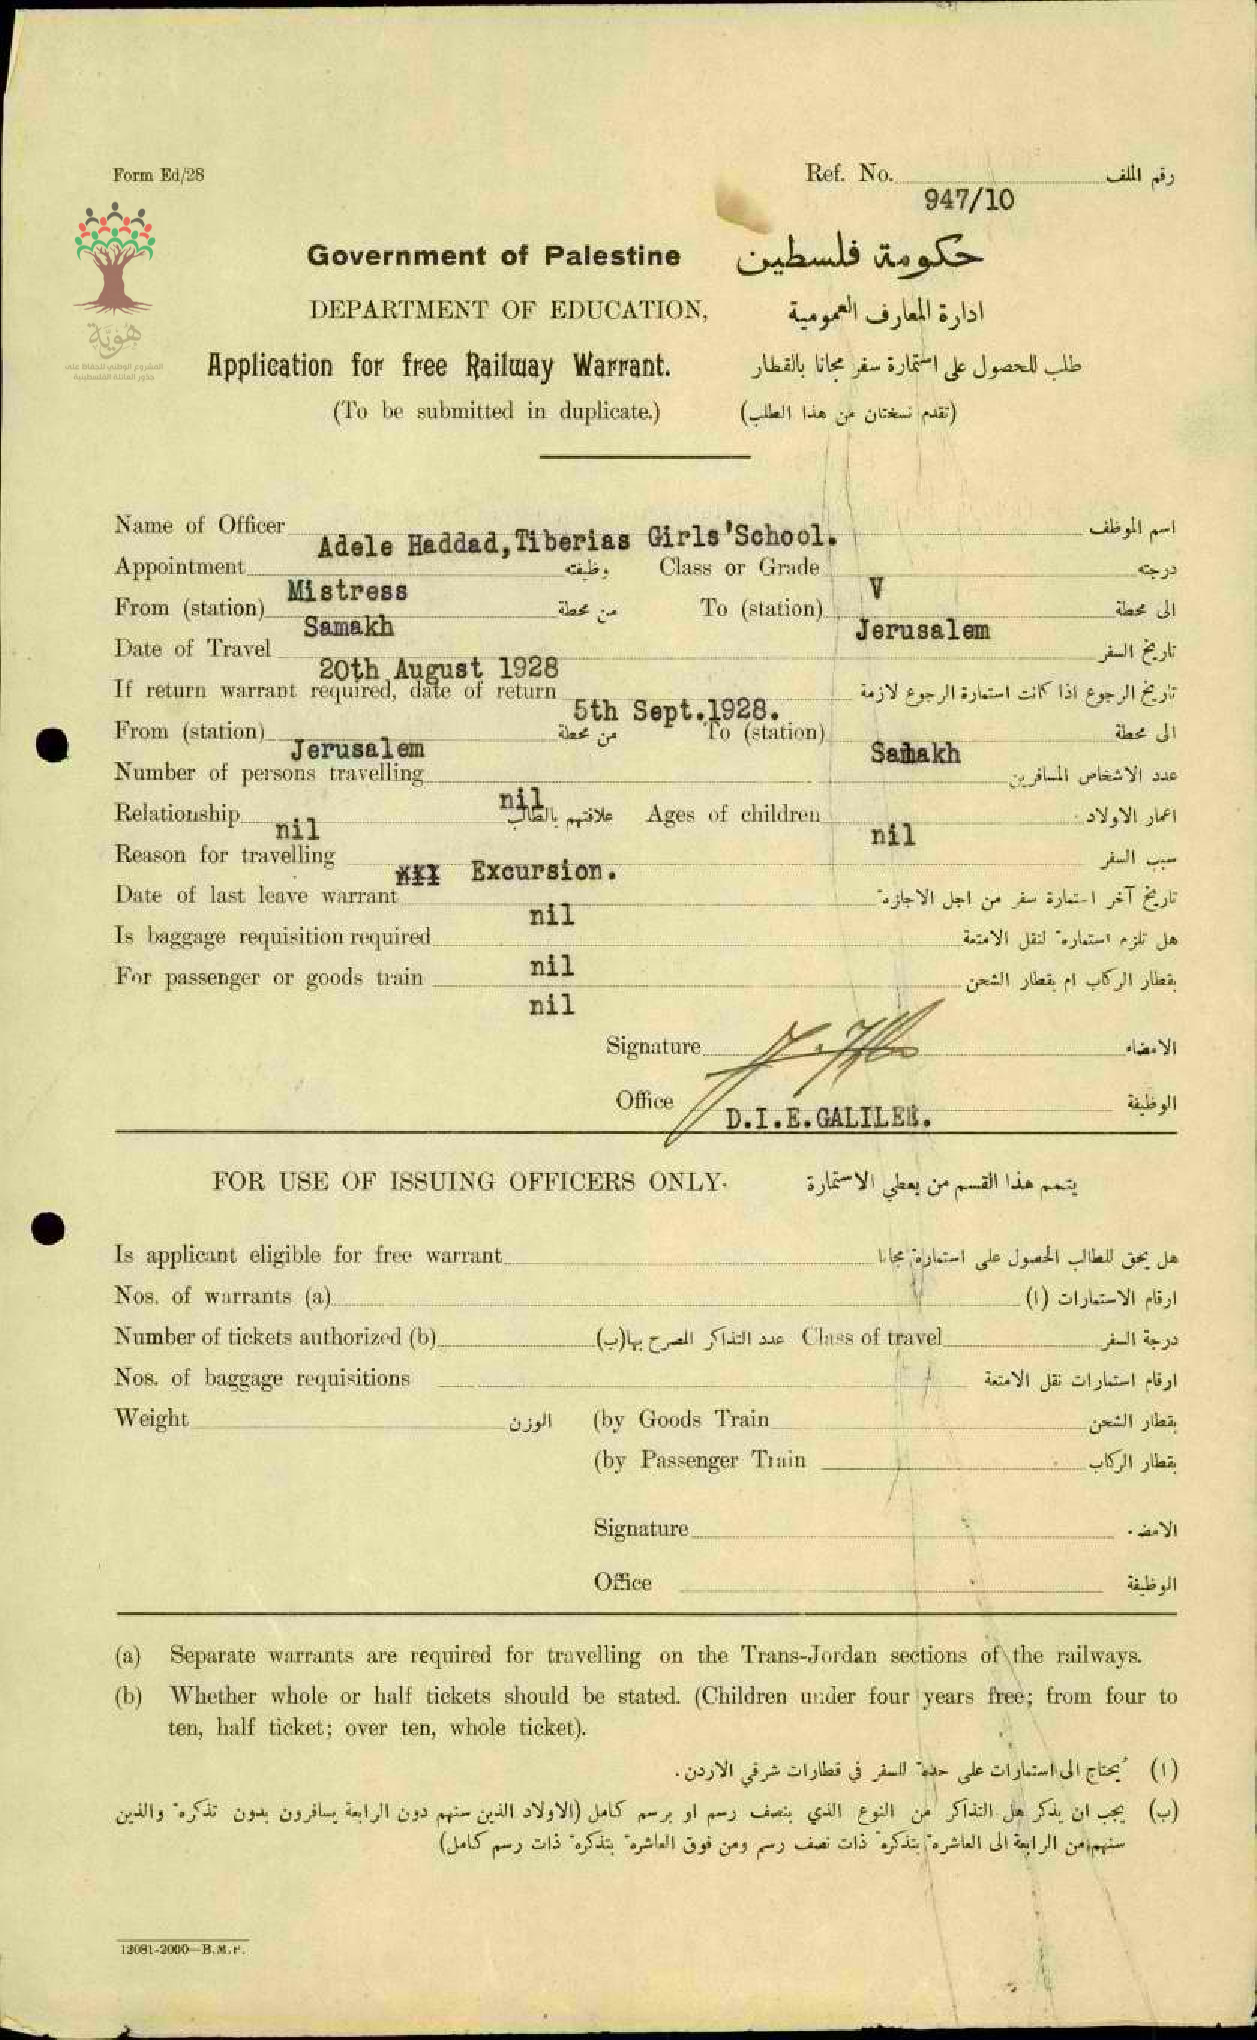 Form Ed/28
Ref. No. رقم الملف
947/10
هوية
المشروع الوطني للحفاظ على
جذور العائلة الفلسطينية
Government of Palestine حكومة فلسطين
DEPARTMENT OF EDUCATION, ادارة المعارف العمومية
Application for free Railway Warrant. طلب للحصول على استمارة سفر مجانا بالقطار
(To be submitted in duplicate.) (تقدم نسختان من هذا الطلب)
Name of Officer اسم الموظف
Adele Haddad, Tiberias Girls' School.
Appointment وظيفته Class or Grade درجته
Mistress V
From (station) من محطة To (station) الى محطة
Samakh Jerusalem
Date of Travel تاريخ السفر
20th August 1928
If return warrant required, date of return تاريخ الرجوع اذا كانت استمارة الرجوع لازمة
5th Sept.1928.
From (station) من محطة To (station) الى محطة
Jerusalem Samakh
Number of persons travelling عدد الاشخاص المسافرين
nil
Relationship علاقتهم بالطالب Ages of children اعمار الاولاد
nil nil
Reason for travelling سبب السفر
Excursion.
Date of last leave warrant تاريخ آخر استمارة سفر من اجل الاجازة
nil
Is baggage requisition required هل تلزم استمارة لنقل الامتعة
nil
For passenger or goods train بقطار الركاب ام بقطار الشحن
nil
Signature الامضاء
Office الوظيفة
D.I.E.GALILEE.
FOR USE OF ISSUING OFFICERS ONLY. يتمم هذا القسم من يعطي الاستمارة
Is applicant eligible for free warrant هل يحق للطالب الحصول على استمارة مجانا
Nos. of warrants (a) ارقام الاستمارات (ا)
Number of tickets authorized (b) عدد التذاكر المصرح بها (ب) Class of travel درجة السفر
Nos. of baggage requisitions ارقام استمارات نقل الامتعة
Weight الوزن (by Goods Train بقطار الشحن
(by Passenger Train بقطار الركاب
Signature الامضاء
Office الوظيفة
(a) Separate warrants are required for travelling on the Trans-Jordan sections of the railways.
(b) Whether whole or half tickets should be stated. (Children under four years free; from four to
ten, half ticket; over ten, whole ticket).
(ا) يحتاج الى استمارات على حدة للسفر في قطارات شرقي الاردن.
(ب) يجب ان يذكر هل التذاكر من النوع الذي بنصف رسم او برسم كامل (الاولاد الذين سنهم دون الرابعة يسافرون بدون تذكرة والذين
سنهم من الرابعة الى العاشرة بتذكرة ذات نصف رسم ومن فوق العاشرة بتذكرة ذات رسم كامل)
12081-2000—B.M.P.